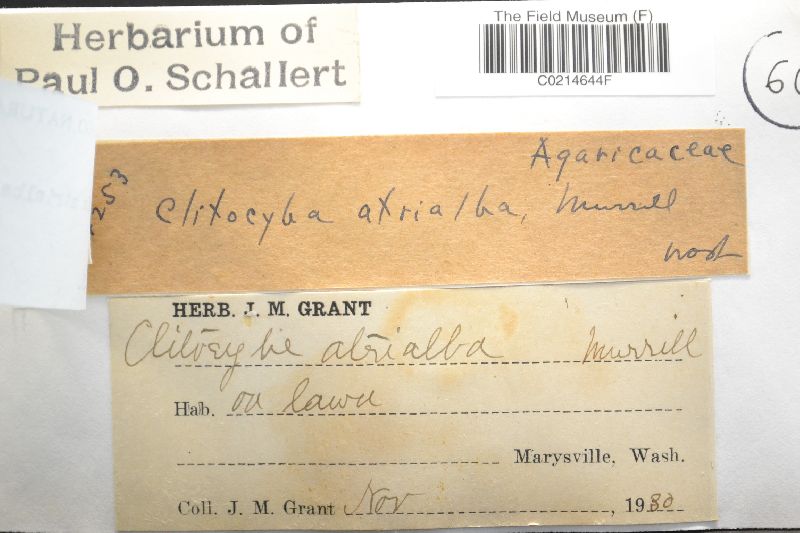 Herbarium of
Paul O. Schallert
The Field Museum (F)
C0214644F
Agaricaceae
Clitocyba atrialba, Murrill
HERB. J. M. GRANT
Clitocybe atrialba Murrill
Hab. on lawn
Marysville, Wash.
Coll. J. M. Grant Nov , 1930